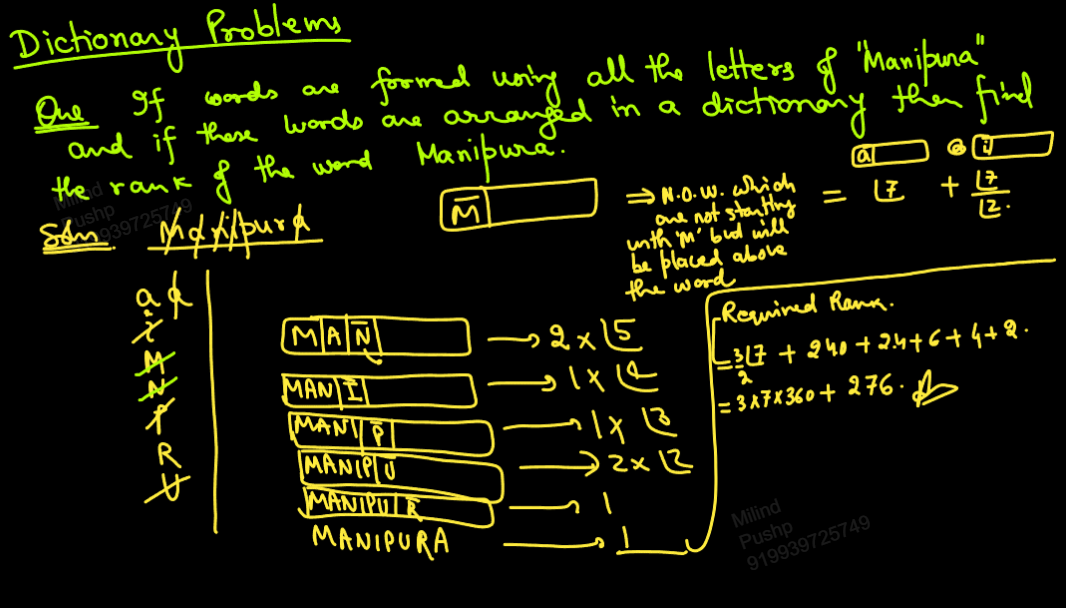 Dictionary Problems
Que If words are formed using all the letters of "Manipura"
and if these words are arranged in a dictionary then find
the rank of the word Manipura.
Milind
Pushp
919939725749
Soln. Manipura
a a
i
M
N
P
R
U
M̄ ⇒ N.O.W. which
are not starting
with 'M' but will
be placed above
the word
a i
= ⌊7 + ⌊7/⌊2.
M|A|N̄ → 2 × ⌊5
MAN|Ī → 1 × ⌊4
MANI|P̄ → 1 × ⌊3
MANIP|Ū → 2 × ⌊2
MANIPU|R̄ → 1
MANIPURA → 1
Required Rank.
= 3/2 ⌊7 + 240 + 24 + 6 + 4 + 2.
= 3×7×360 + 276.
Milind
Pushp
919939725749